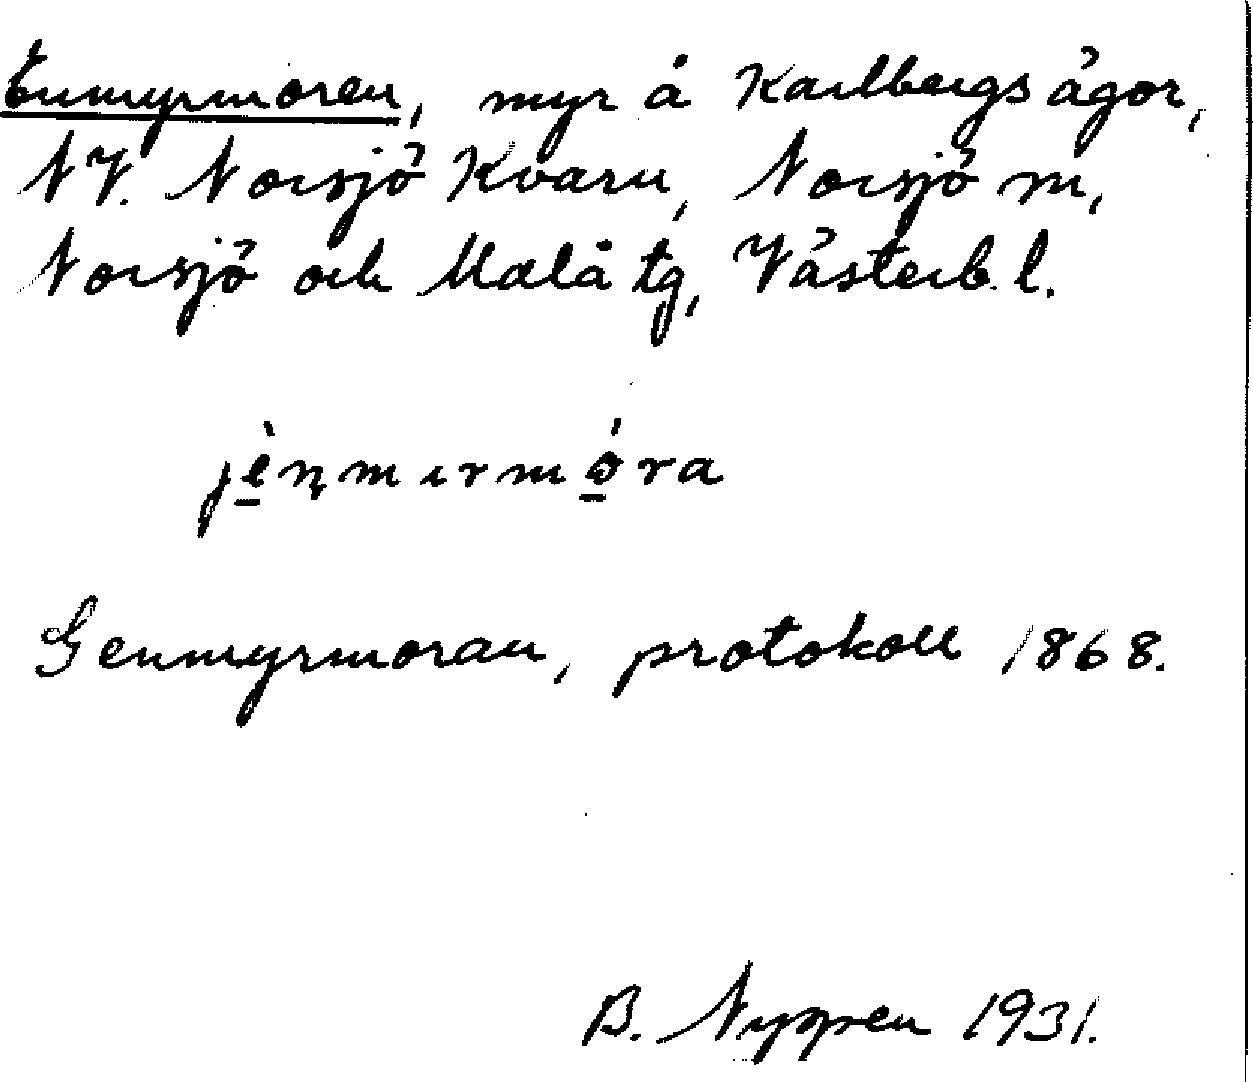 Enmyrmoren, myr å Karlbergs ägor,
NV. Norsjö Kvarn, Norsjö sn,
Norsjö och Malå tg, Västerb. l.
jènmırmóra
Genmyrmoran, protokoll 1868.
B. Nygren 1931.